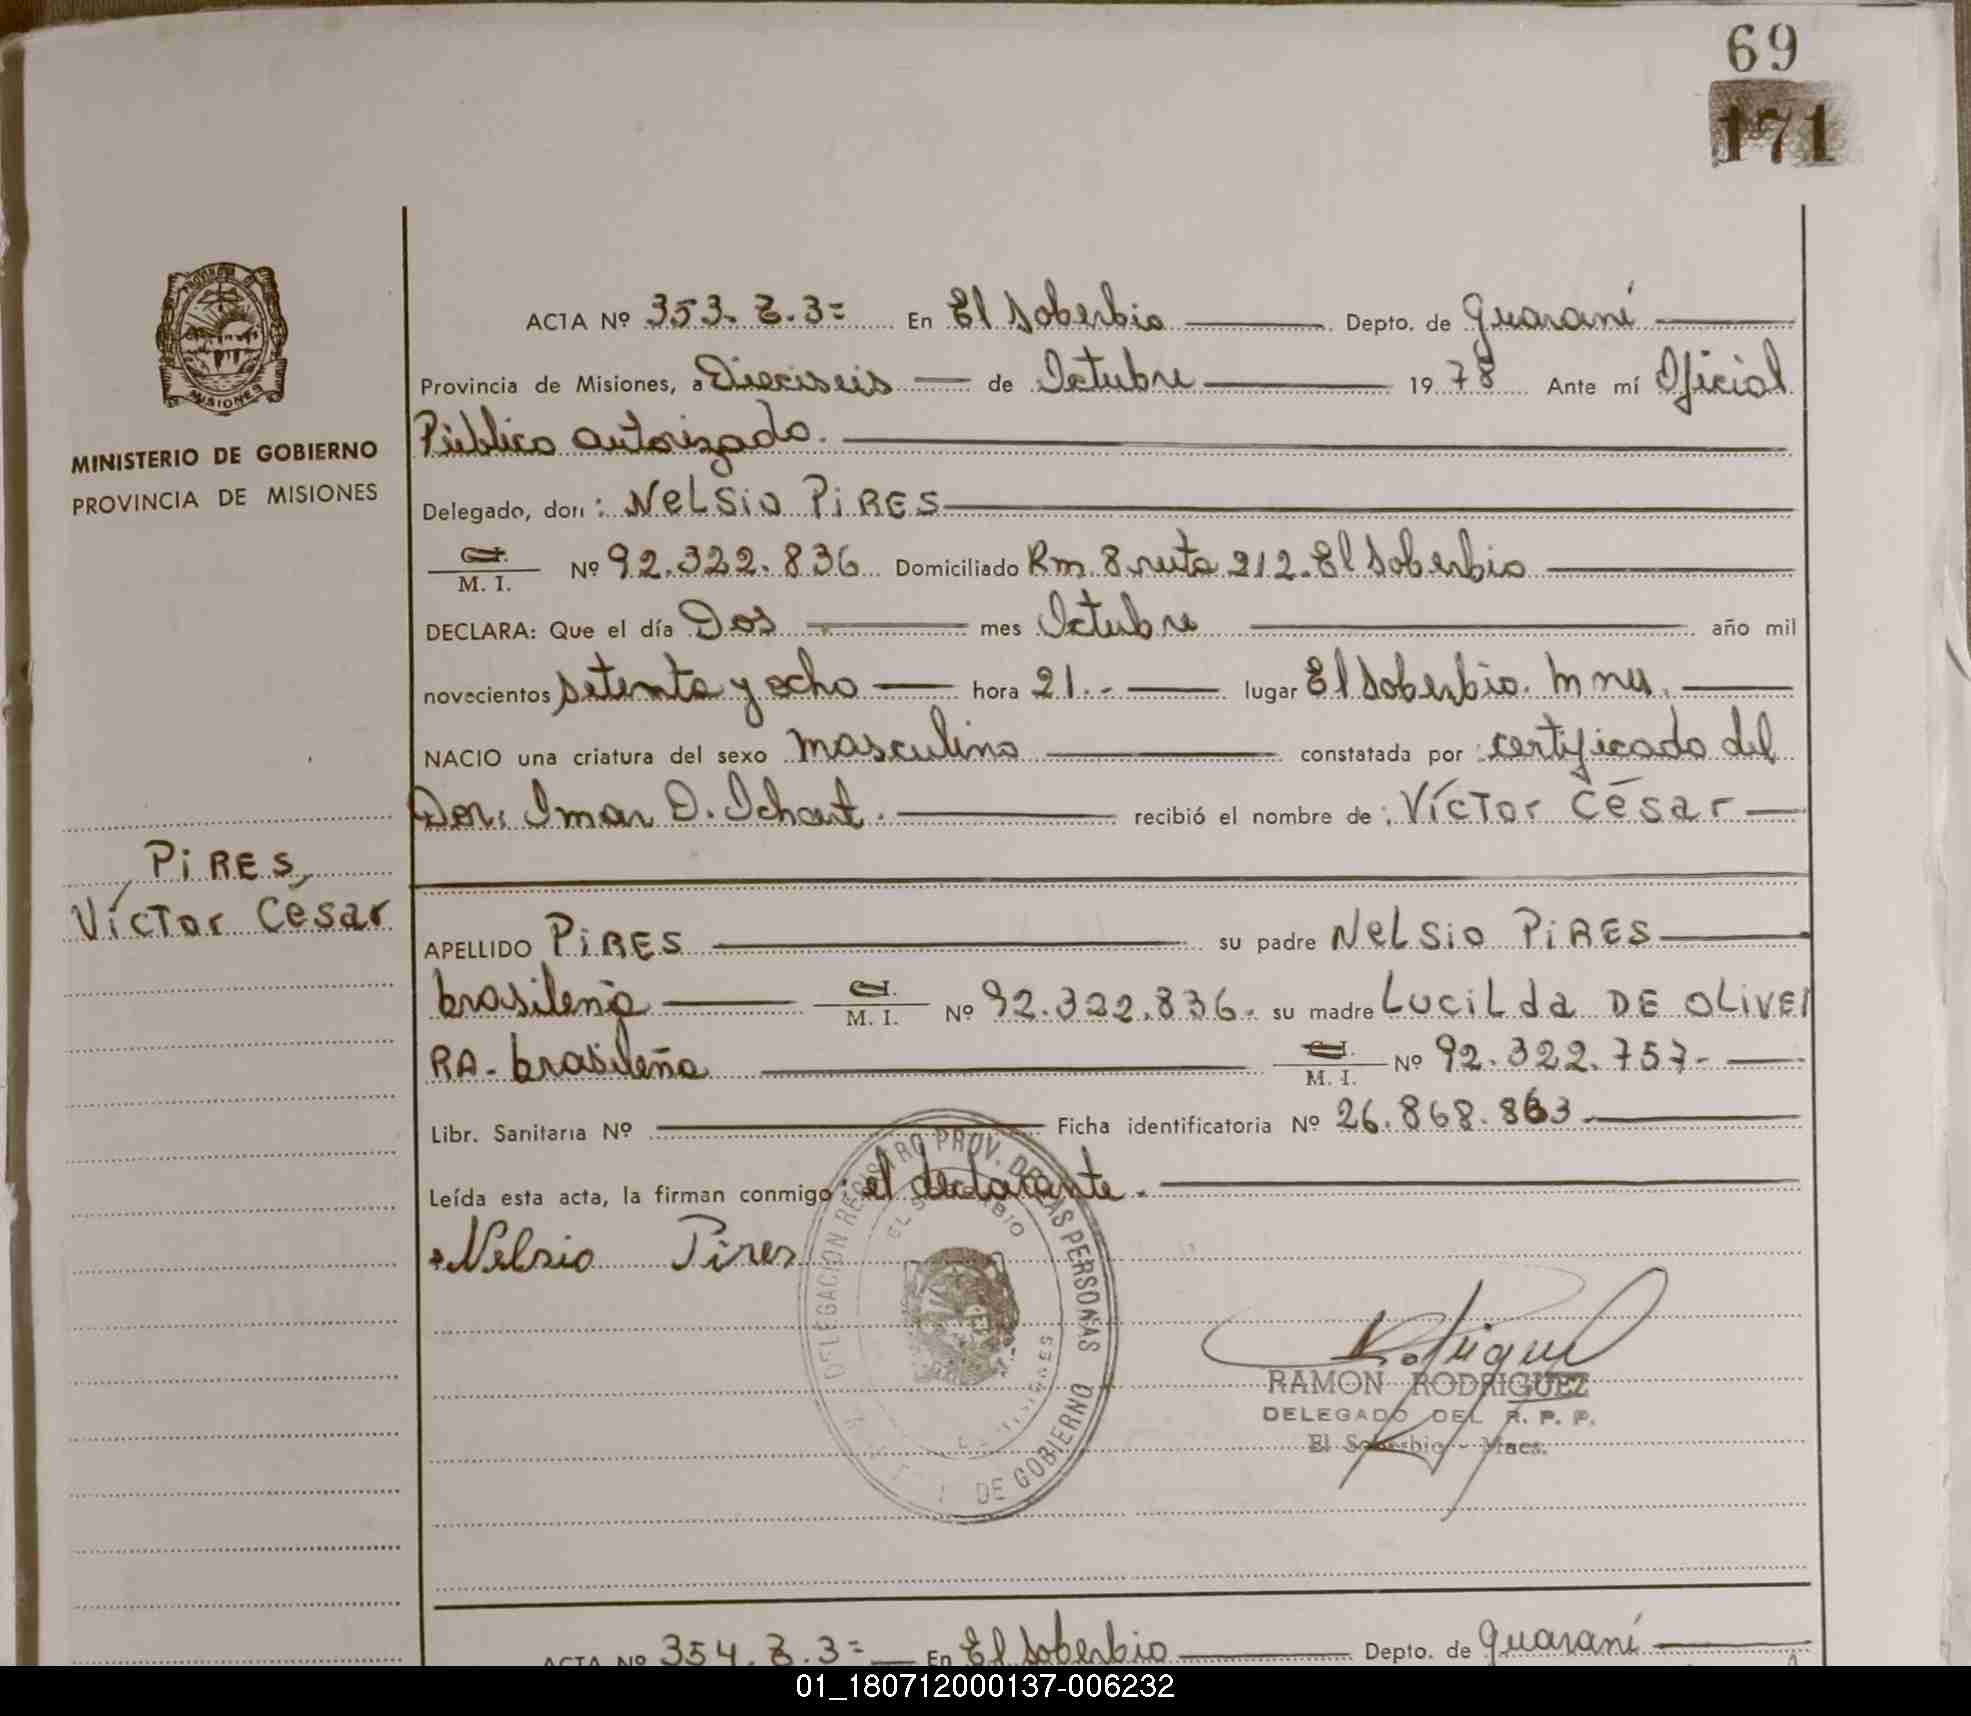 69
171
ACTA Nº 353. Z. 3= En El Soberbio Depto. de Guaraní
Provincia de Misiones, a Dieciseis de Octubre 1978 Ante mí Oficial
Público autorizado.
Delegado, don: NELSIO PIRES
C.I. M. I. Nº 92.322.836 Domiciliado Km. 8 ruta 212. El Soberbio
DECLARA: Que el día Dos mes Octubre año mil
novecientos setenta y ocho hora 21.- lugar El Soberbio. Mnes.
NACIO una criatura del sexo masculino constatada por certificado del
recibió el nombre de: Víctor César
MINISTERIO DE GOBIERNO
PROVINCIA DE MISIONES
PIRES,
Víctor César
APELLIDO PIRES su padre NELSIO PIRES
brasileña C.I. M. I. Nº 92.322.836. su madre LUCILda DE OLIVEI
RA- brasileña C.I. M. I. Nº 92.322.757-
Libr. Sanitaria Nº Ficha identificatoria Nº 26.868.863
Leída esta acta, la firman conmigo: el declarante.
Nelsio Pires
DELEGACION REGISTRO PROV. DE LAS PERSONAS
EL SOBERBIO
MISIONES
DE GOBIERNO
RAMON RODRIGUEZ
DELEGADO DEL R. P. P.
El Soberbio - Mnes.
ACTA Nº 354. Z. 3= En El Soberbio Depto. de Guaraní
01_180712000137-006232